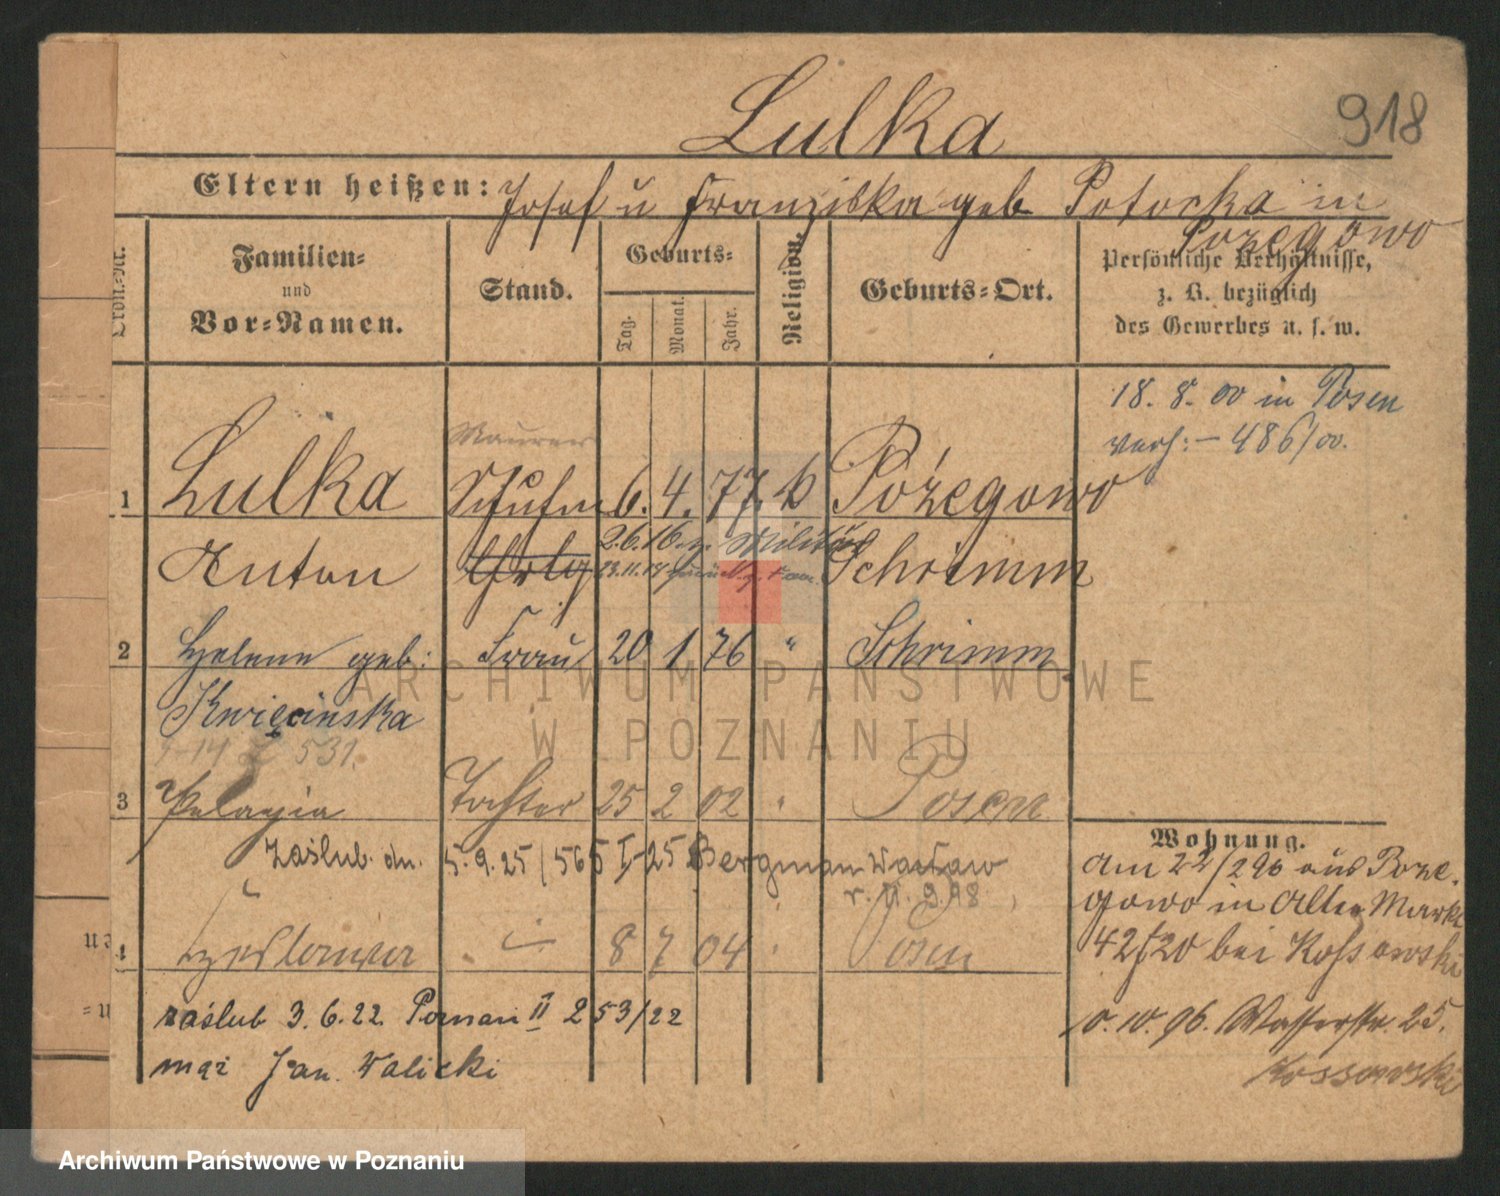 Lulka
918
Eltern heißen: Josef u Franziska geb. Potocka in
Pożegowo
Familien-
und
Vor-Namen.
Stand.
Geburts-
Tag.
Monat.
Jahr.
Religion.
Geburts-Ort.
Persönliche Verhältnisse,
z. B. bezüglich
des Gewerbes u. s. w.
18. 8. 00 in Posen
verh: - 486/00.
Maurer
1 Lulka 6. 4. 77. k Pożegowo
Anton Schrimm
2.6.16 Militär
2 Helene geb: Frau 20 1 76 " Schrimm
Kwiecinska
531.
3 Pelagia Tochter 25 2 02 " Posen
zaślub. dn. 5.9.25/565 I-25 Bergman Wacław
r. 11.9.98
4 Czeslawa 8 7 04 Posen
zaślub 3.6.22 Poznań II 253/22
mąż Jan Walicki
Wohnung.
am 22/2 96 aus Poze-
gowo in Alter Markt
42/20 bei Kossowski
10.10.96. Wasserstr. 25.
Kossowski
ARCHIWUM PAŃSTWOWE
W POZNANIU
Archiwum Państwowe w Poznaniu